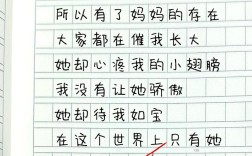 所以有了妈妈的存在
大家都在催我长大
她却心疼我的小翅膀
我没有让她骄傲
她却待我如宝
在这个世界上只有她